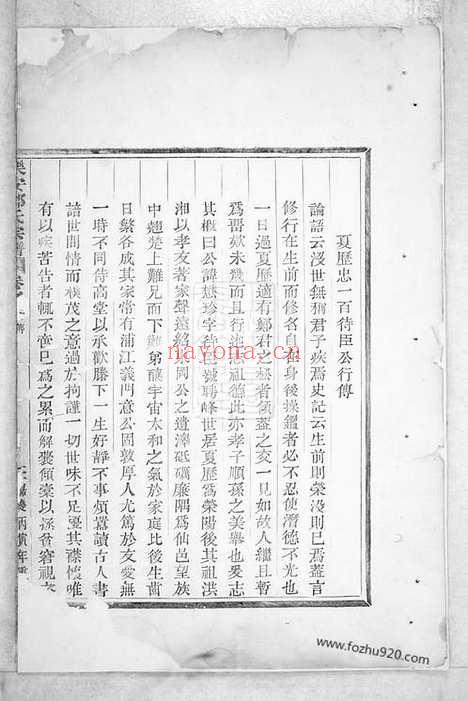 夏歷忠一百待臣公行傳
論語云沒世無稱君子疾焉史記云生前則榮沒則已焉蓋言
修行在生前而修名自在身後操鑑者必不忍使潛德不光也
一日過夏歷適有鄭君之 者傾蓋之交一見如故人繼且暫
為畱欵未幾而且行述 思祖德此亦孝子順孫之美舉也爰志
其概曰公諱 珍字待 號 峰世居夏歷為滎陽後其祖洪
湘以孝友著家聲遠紹 國公之遺澤砥礪廉隅為仙邑望族
中翹楚上難兄而下難弟釀宇宙太和之氣於家庭比後生齒
日繁各成其家常有浦江義門意公固敦厚人尤篤於友愛無
一時不同侍高堂以承歡膝下一生好靜不事煩囂讀古人書
諳世間情而樸茂之意過於拘謹一切世味不足擾其襟懷唯
有以疾苦告者輒不啻已為之累而解囊傾橐以 貧窘視
鄭氏宗譜
丙寅年
nayona.cn
www.fozhu920.com